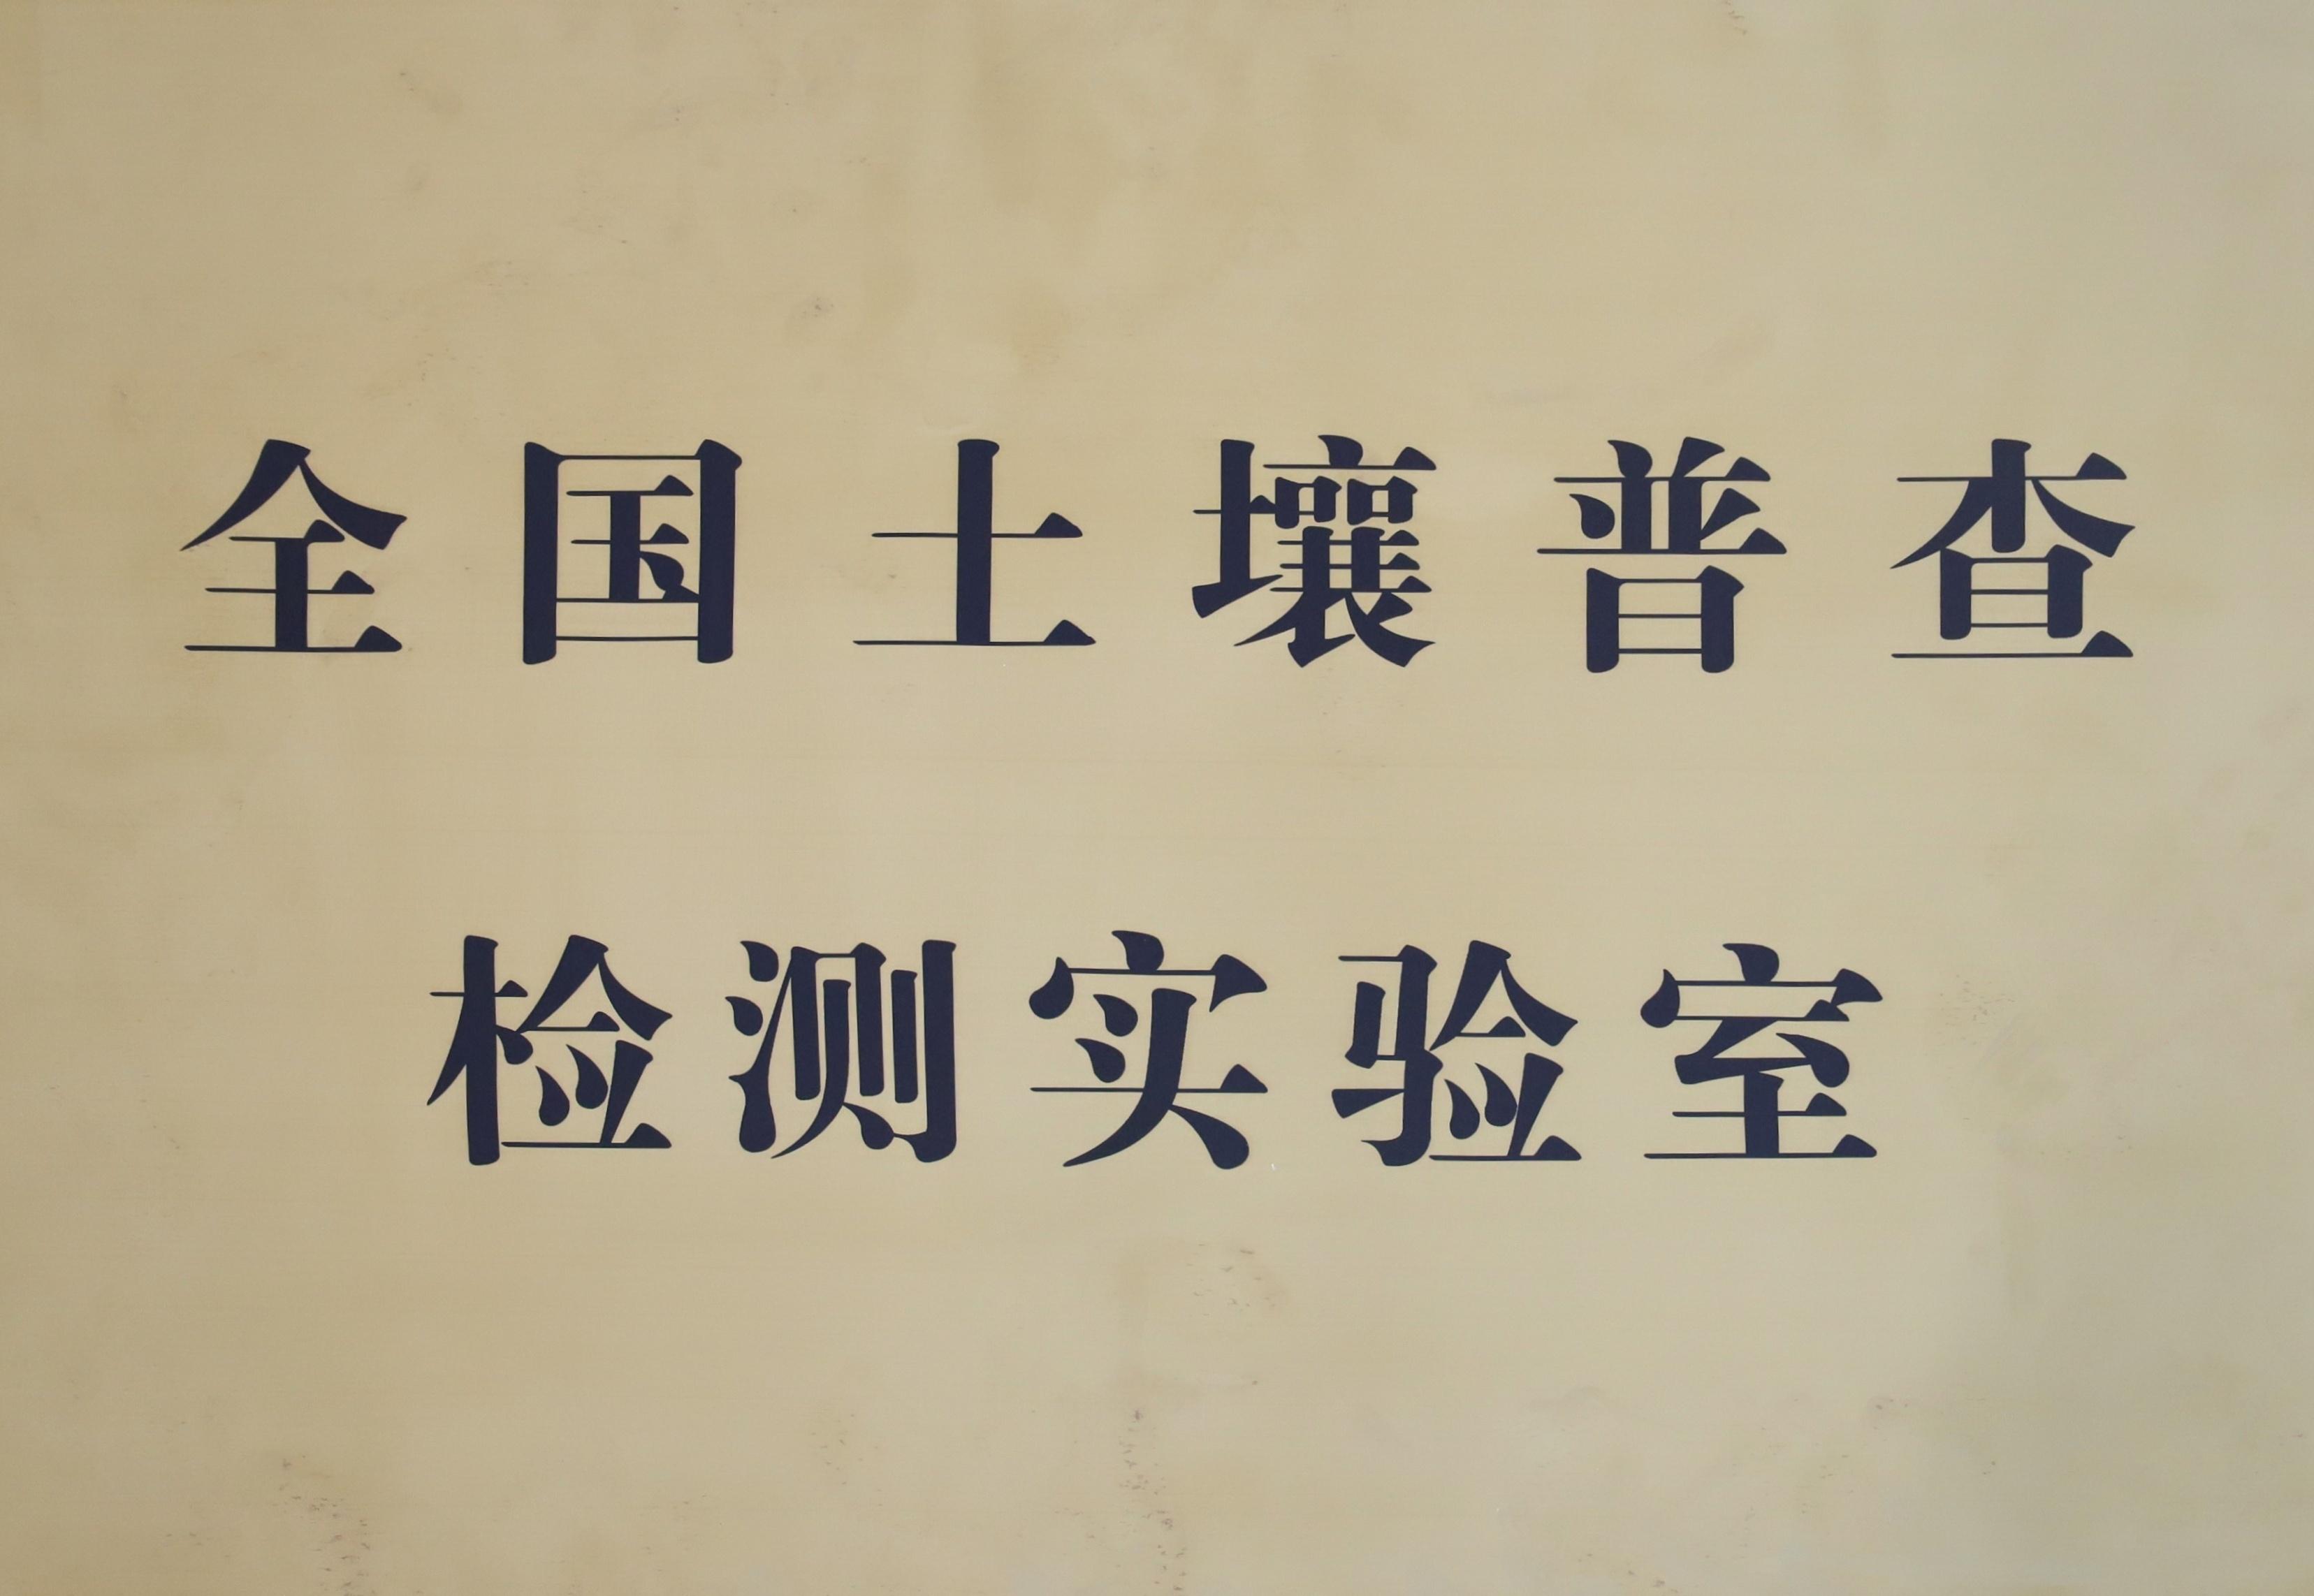 全国土壤普查
检测实验室